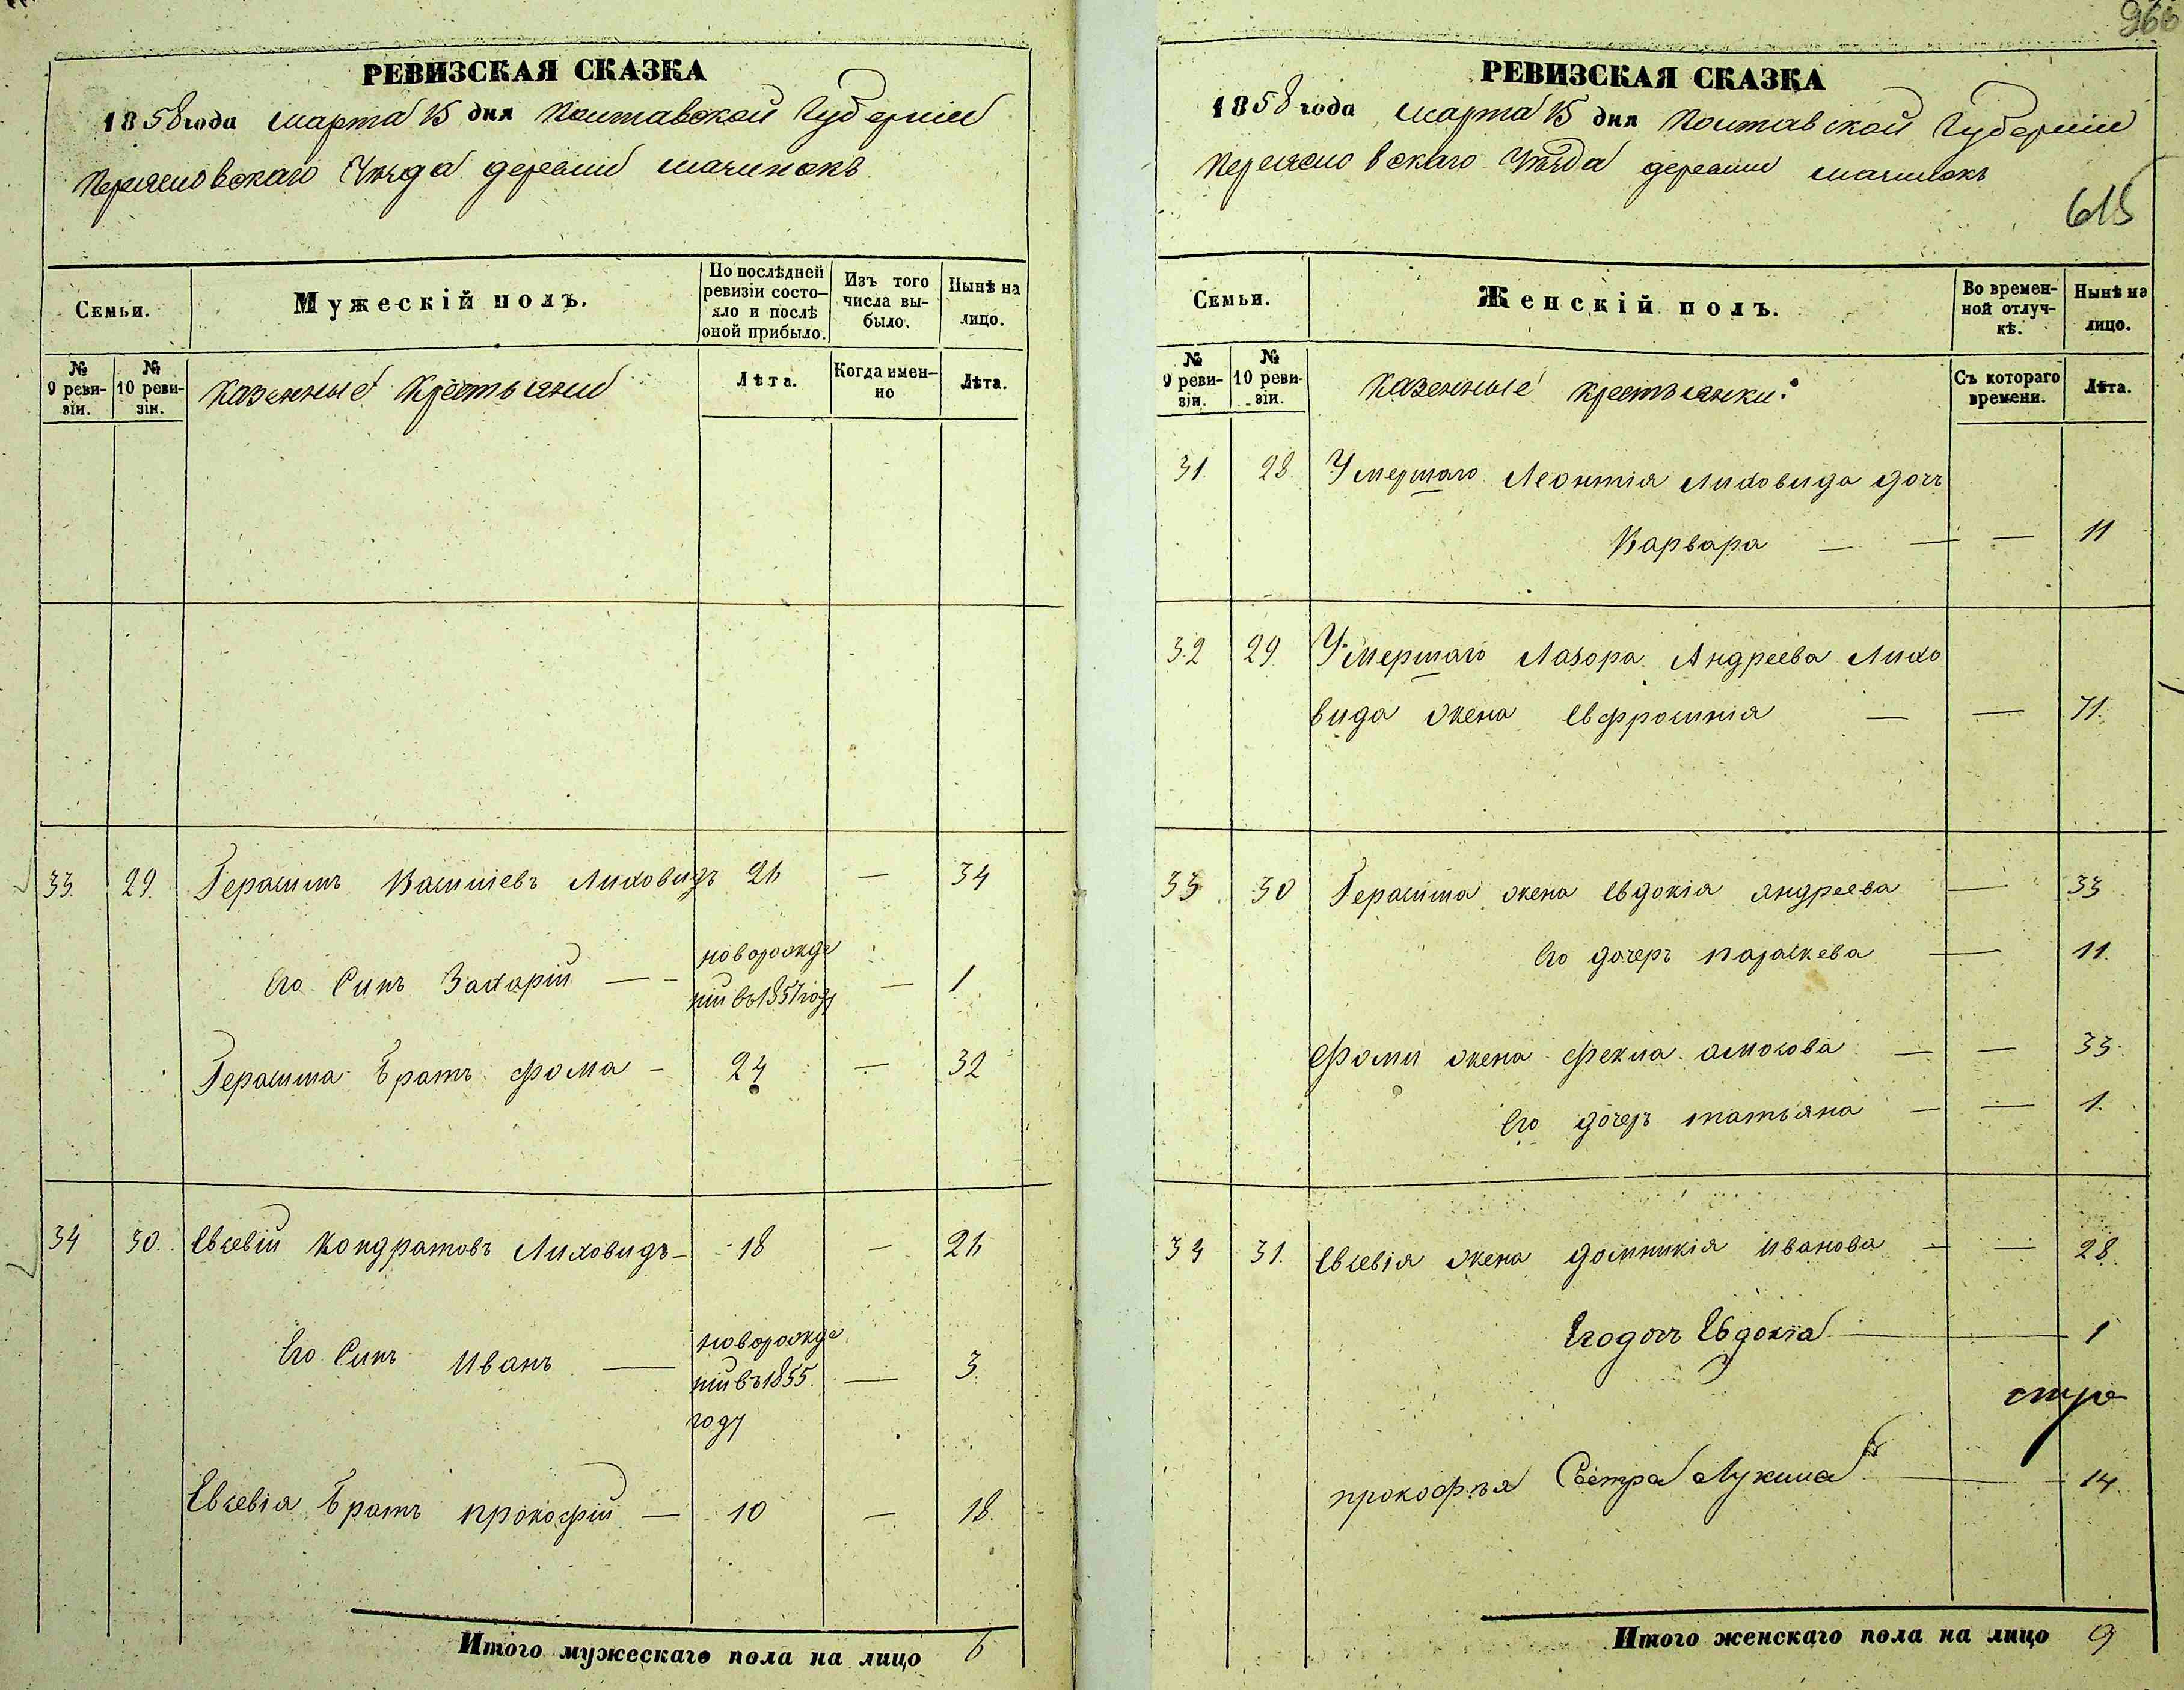 РЕВИЗСКАЯ СКАЗКА
1858 года марта 15 дня Полтавской Губерніи
Переяславскаго Уезда деревни
Семьи.
Мужескій полъ.
По послѣдней ревизіи состо-
яло и послѣ
оной прибыло.
Изъ того
числа вы-
было.
Нынѣ на
лицо.
№
9 реви-
зіи.
№
10 реви-
зіи.
Казенные Крестьяни
Лѣта.
Когда имен-
но
Лѣта.
33. 29. Герасимъ Василіевъ Лиховидъ 26 — 34
Его Синъ Захарій — новорожде
ній въ 1857 году — 1
Герасима Братъ Фома — 24 — 32
34 30. Евсевій Кондратовъ Лиховидъ — 18 — 26
Его Синъ Иванъ — новорожде
ній въ 1855 — 3
году
Евсевія Братъ Прокофій — 10 — 18
Итого мужескаго пола на лицо 6
966
РЕВИЗСКАЯ СКАЗКА
1858 года марта 15 дня Полтавской Губерніи
Переяславскаго Уѣзда деревни
615
Семьи.
Женскій полъ.
Во времен-
ной отлуч-
кѣ.
Нынѣ на
лицо.
№
9 реви-
зіи.
№
10 реви-
зіи.
Казенные крестьянки:
Съ котораго
времени.
Лѣта.
31. 28. Умершаго Леонтія Лиховида дочъ
Варвара — — — 11
32 29. Умершаго Лазора Андреева Лихо
вида жена Евфросинія — — 71.
33. 30 Герасима жена Евдокія Андреева — 33
Его дочеръ Параскева — 11.
Фоми жена Фекла Амосова — — 33.
Его дочеръ Татьяна — — 1.
34 31. Евсевія жена Домникія Иванова — — 28
Его дочъ Евдокіа — 1
Прокофъя Сестра — 14
Итого женскаго пола на лицо 9